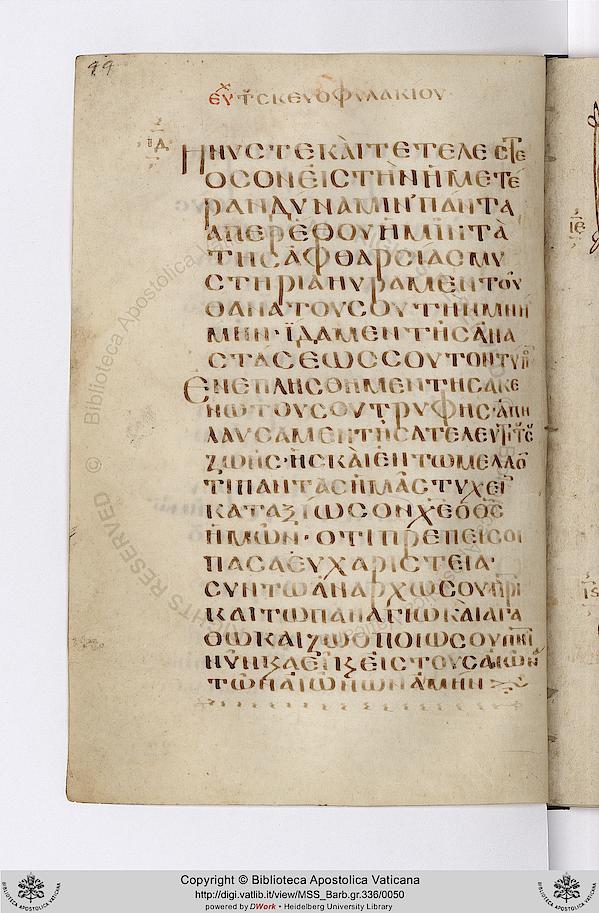 99
ΕΥΧ Τ ϹΚΕΥΟΦΥΛΑΚΙΟΥ
ΙΔ
ΗΝΥϹΤΕ ΚΑΙ ΤΕΤΕΛΕϹΤΕ
ΟϹΟΝ ΕΙϹ ΤΗΝ ΗΜΕΤΕ
ΡΑΝ ΔΥΝΑΜΙΝ ΠΑΝΤΑ
ΑΠΕΡ ΕΘΟΥ ΗΜΙΝ ΤΑ
ΤΗϹ ΑΦΘΑΡϹΙΑϹ ΜΥ
ϹΤΗΡΙΑ ΗΥΡΑΜΕΝ ΤΟΥ
ΘΑΝΑΤΟΥ ϹΟΥ ΤΗΝ ΜΝΗ
ΜΗΝ· ΪΔΑΜΕΝ ΤΗϹ ΑΝΑ
ϹΤΑϹΕΩϹ ϹΟΥ ΤΟΝ ΤΥΠΟ̅
ΕΝΕΠΛΗϹΘΗΜΕΝ ΤΗϹ ΑΚΕ
ΝΩΤΟΥ ϹΟΥ ΤΡΥΦΗϹ· ΑΠΗ
ΛΑΥϹΑΜΕΝ ΤΗϹ ΑΤΕΛΕΥΤΗΤΟΥ
ΖΩΗϹ· ΗϹ ΚΑΙ ΕΝ ΤΩ ΜΕΛΛΟ̅
ΤΙ ΠΑΝΤΑϹ ΗΜΑϹ ΤΥΧΕΙ̅
ΚΑΤΑΞΙΩϹΟΝ Χ̅Ε̅ Ο Θ̅Ϲ̅
ΗΜΩΝ· ΟΤΙ ΠΡΕΠΕΙ ϹΟΙ
ΠΑϹΑ ΕΥΧΑΡΙϹΤΕΙΑ·
ϹΥΝ ΤΩ ΑΝΑΡΧΩ ϹΟΥ Π̅Ρ̅Ι̅
ΚΑΙ ΤΩ ΠΑΝΑΓΙΩ ΚΑΙ ΑΓΑ
ΘΩ ΚΑΙ ΖΩΟΠΟΙΩ ϹΟΥ Π̅Ν̅Ι̅
ΝΥΝ Ϗ ΑΕΙ Ϗ ΕΙϹ ΤΟΥϹ ΑΙΩΝ
ΤΩΝ ΑΙΩΝΩΝ ΑΜΗΝ
ΙΕ
Ιϛ
Copyright © Biblioteca Apostolica Vaticana
http://digi.vatlib.it/view/MSS_Barb.gr.336/0050
powered by DWork • Heidelberg University Library